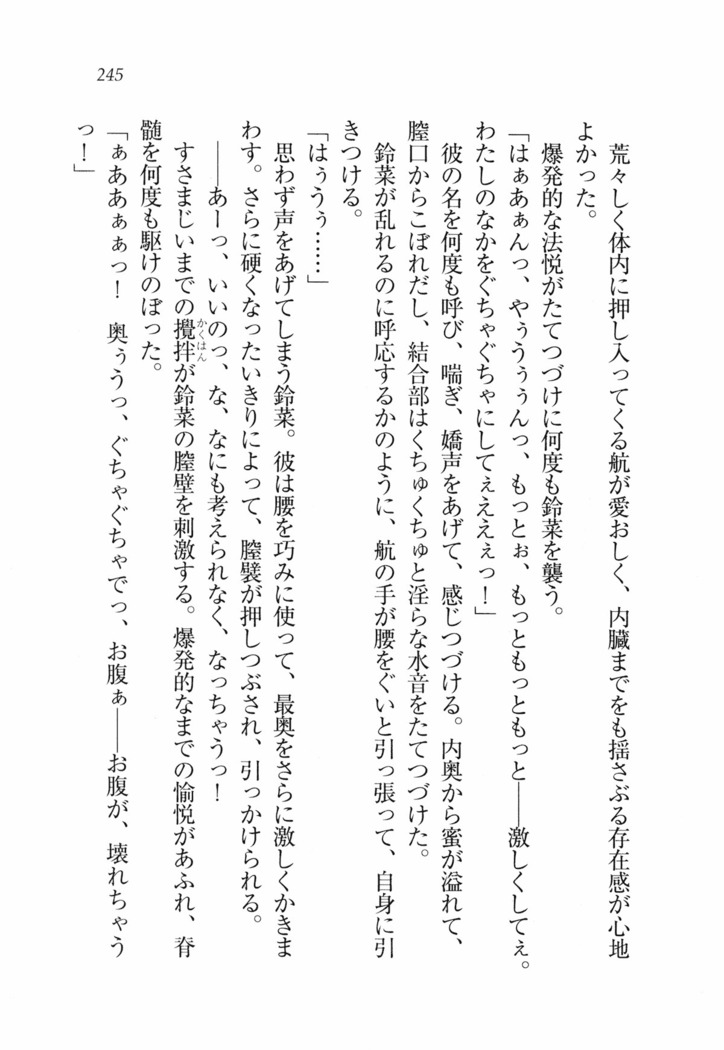 245
荒々しく体内に押し入ってくる航が愛おしく、内臓までをも揺さぶる存在感が心地
よかった。
爆発的な法悦がたてつづけに何度も鈴菜を襲う。
「はぁあぁんっ、やぅうぅぅんっ、もっとぉ、もっともっともっと――激しくしてぇ。
わたしのなかをぐちゃぐちゃにしてぇえええぇっ！」
彼の名を何度も呼び、喘ぎ、嬌声をあげて、感じつづける。内奥から蜜が溢れて、
膣口からこぼれだし、結合部はくちゅくちゅと淫らな水音をたてつづけた。
鈴菜が乱れるのに呼応するかのように、航の手が腰をぐいと引っ張って、自身に引
きつける。
「はぅうぅ……」
思わず声をあげてしまう鈴菜。彼は腰を巧みに使って、最奥をさらに激しくかきま
わす。さらに硬くなったいきりによって、膣襞が押しつぶされ、引っかけられる。
――あーっ、いいのっ、な、なにも考えられなく、なっちゃうっ！
すさまじいまでの攪拌かくはんが鈴菜の膣壁を刺激する。爆発的なまでの愉悦があふれ、脊
髄を何度も駆けのぼった。
「ぁああぁぁっ！　奥ぅうっ、ぐちゃぐちゃでっ、お腹ぁ――お腹が、壊れちゃう
っ！」